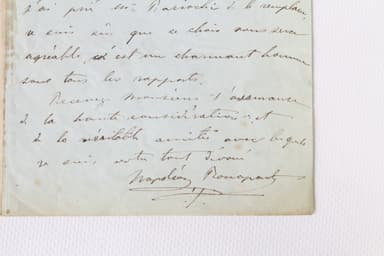 j'ai prié Mr Bariochi de le remplacer
je suis sûr que ce choix vous sera
agréable, c'est un charmant homme
sous tous les rapports.
Recevez Monsieur l'assurance
de la haute considération et
de la véritable amitié avec laquelle
je suis votre tout dévoué
Napoléon Bonaparte